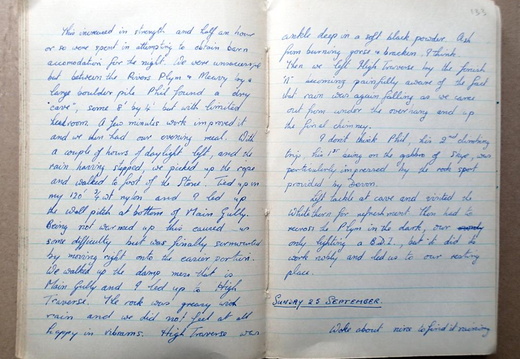 This increased in strength and half an hour
or so were spent in attempting to obtain barn
accomodation for the night. We were unsuccessful
but between the Rivers Plym & Meavy by a
large boulder pile Phil found a dry
"cave", some 8' by 4' but with limited
headroom. A few minutes work improved it
and we then had our evening meal. With
a couple of hours of daylight left, and the
rain having stopped, we picked up the rope
and walked to foot of the Stone. Tied up on
my 120' 3/4 wt nylon and I led up
the Wall pitch at bottom of Main Gully.
Being not warmed up this caused us
some difficulty but was finally surmounted
by moving right onto the easier section.
We walked up the damp mess that is
Main Gully and I led up to High
Traverse. The rock was greasy with
rain and we did not feel at all
happy in vibrams. High Traverse was
133
ankle deep in a soft black powder. Ash
from burning gorse & bracken I think.
Then we left High Traverse by the finish
"A" becoming painfully aware of the fact
that rain was again falling as we came
out from under the overhang and up
the final chimney.
I don't think Phil, his 2nd climbing
trip, his 1st being on the gabbro of Skye, was
particularly impressed by the rock sport
provided by Devon.
Left tackle at cave and visited the
White Thorn for refreshment. Then had to
recross the Plym in the dark, our
only lighting a B.D.I., but it did its
work nobly and led us to our resting
place.
SUNDAY 25 SEPTEMBER.
Woke about nine to find it raining